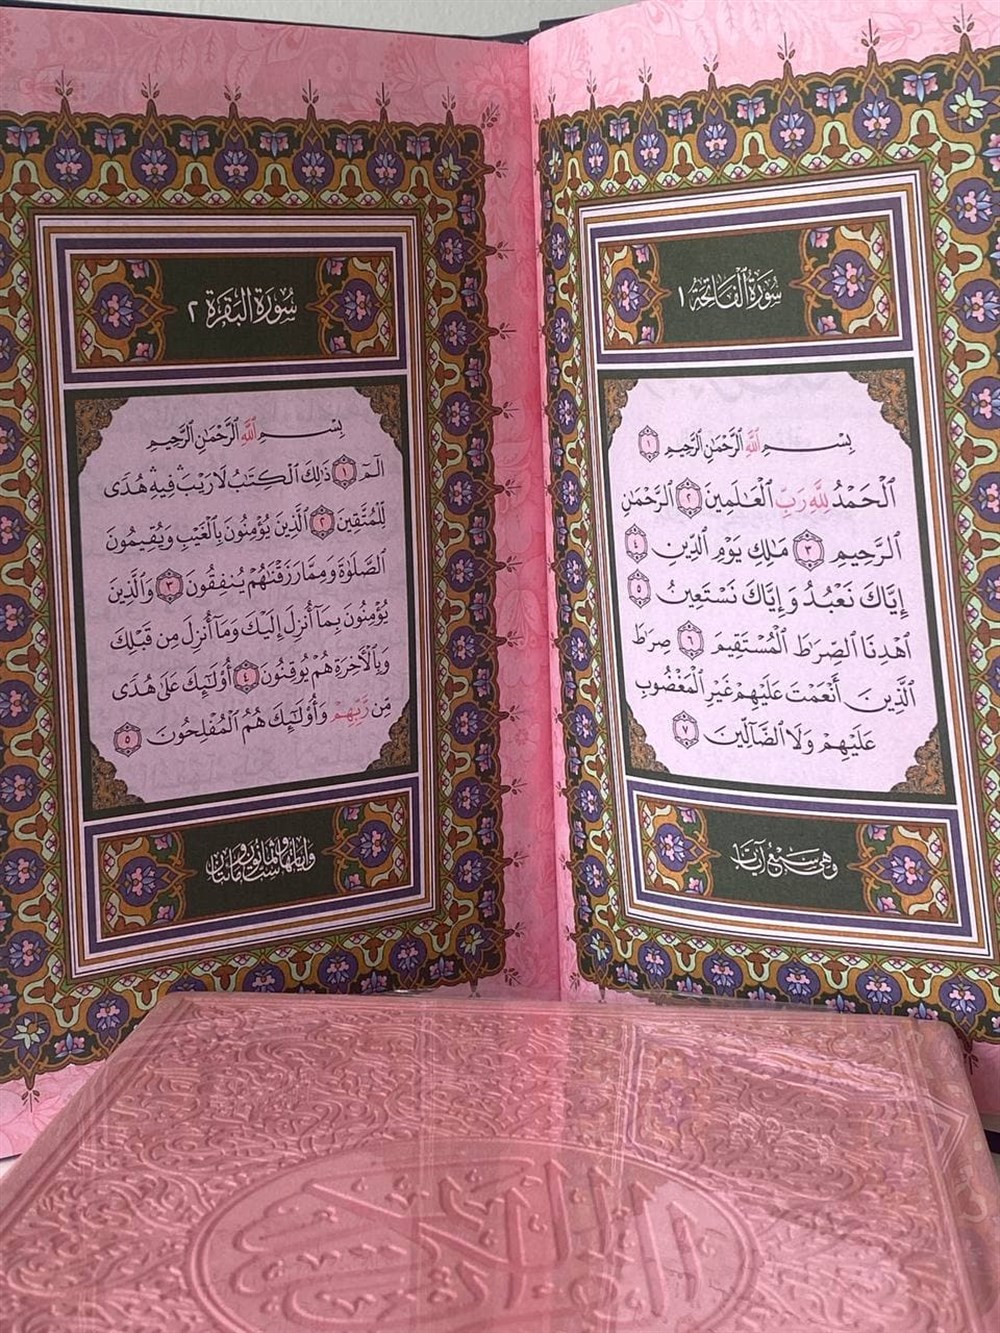 سُورَةُ ٱلْفَاتِحَةِ ١
بِسْمِ ٱللَّهِ ٱلرَّحْمَٰنِ ٱلرَّحِيمِ ١
ٱلْحَمْدُ لِلَّهِ رَبِّ ٱلْعَٰلَمِينَ ٢ ٱلرَّحْمَٰنِ
ٱلرَّحِيمِ ٣ مَٰلِكِ يَوْمِ ٱلدِّينِ ٤
إِيَّاكَ نَعْبُدُ وَإِيَّاكَ نَسْتَعِينُ ٥
ٱهْدِنَا ٱلصِّرَٰطَ ٱلْمُسْتَقِيمَ ٦ صِرَٰطَ
ٱلَّذِينَ أَنْعَمْتَ عَلَيْهِمْ غَيْرِ ٱلْمَغْضُوبِ
عَلَيْهِمْ وَلَا ٱلضَّآلِّينَ ٧
وهي سبع آيات
سُورَةُ ٱلْبَقَرَةِ ٢
بِسْمِ ٱللَّهِ ٱلرَّحْمَٰنِ ٱلرَّحِيمِ
الٓمٓ ١ ذَٰلِكَ ٱلْكِتَٰبُ لَا رَيْبَ ۛ فِيهِ ۛ هُدًى
لِّلْمُتَّقِينَ ٢ ٱلَّذِينَ يُؤْمِنُونَ بِٱلْغَيْبِ وَيُقِيمُونَ
ٱلصَّلَوٰةَ وَمِمَّا رَزَقْنَٰهُمْ يُنفِقُونَ ٣ وَٱلَّذِينَ
يُؤْمِنُونَ بِمَآ أُنزِلَ إِلَيْكَ وَمَآ أُنزِلَ مِن قَبْلِكَ
وَبِٱلْءَاخِرَةِ هُمْ يُوقِنُونَ ٤ أُو۟لَٰٓئِكَ عَلَىٰ هُدًى
مِّن رَّبِّهِمْ وَأُو۟لَٰٓئِكَ هُمُ ٱلْمُفْلِحُونَ ٥
وآياتها ست وثمانون ومائتان